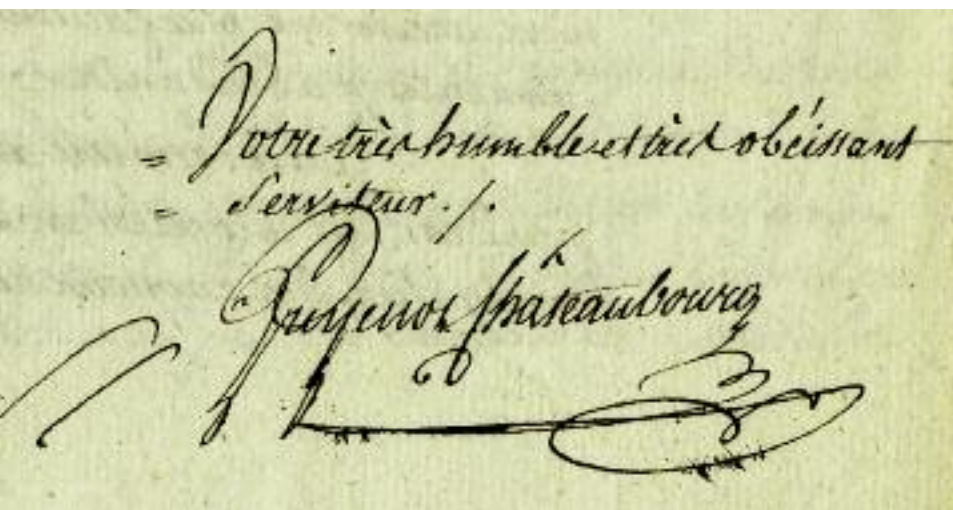 = Votre très humble et très obéissant
= Serviteur ./.
Guyenot Châteaubourg